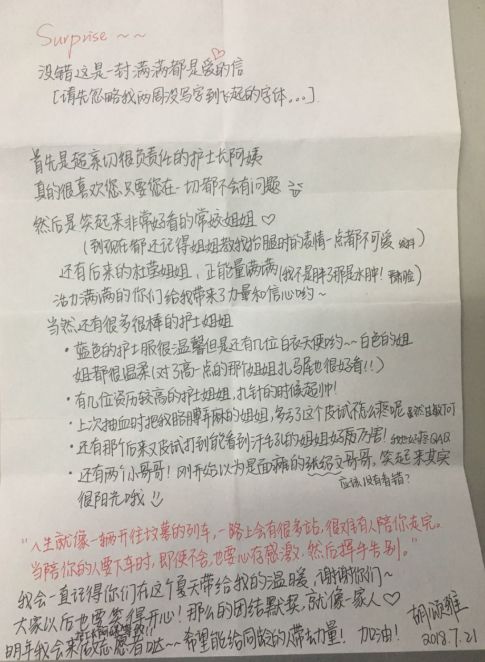 Surprise ~ ~
没错这是一封满满都是爱的信
[请先忽略我两周没写字到飞起的字体...]
首先是超亲切很负责任的护士长阿姨
真的很喜欢您只要您在一切都不会有问题
然后是笑起来非常好看的常姣姐姐♡
(到现在都还记得姐姐教我抬腿时的表情一点都不可爱)
还有后来的杜莹姐姐,正能量满满(我不是胖了那是水肿!)
活力满满的你们给我带来了力量和信心哟~
当然还有很多很棒的护士姐姐
·蓝色的护士服很温馨但是还有几位白衣天使哟~~白色的姐
姐都很温柔(对了高一点的那个姐姐扎马尾也很好看!!)
·有几位资历较高的护士姐姐,扎针的时候超帅!
·上次抽血时把我胳膊弄麻的姐姐,多亏了这个皮试不怎么疼呢
·还有那个后来又皮试打到能看到汗毛孔的姐姐好厉害!QAQ
·还有两个小哥哥!刚开始以为是面瘫的张绍文哥哥,笑起来其实
应该没有看错?
很阳光哦!!
"人生就像一辆开往坟墓的列车,一路上会有很多站,很难有人陪你走完。
当陪你的人要下车时,即使不舍,也要心存感激,然后挥手告别。"
我会一直记得你们在这个夏天带给我的温暖,谢谢你们~
大家以后也要笑得开心!那么的团结默契,就像一家人♡
明年我会来做志愿者哒~~希望能给同龄的带动量!加油!
胡颂雅
2018.7.21